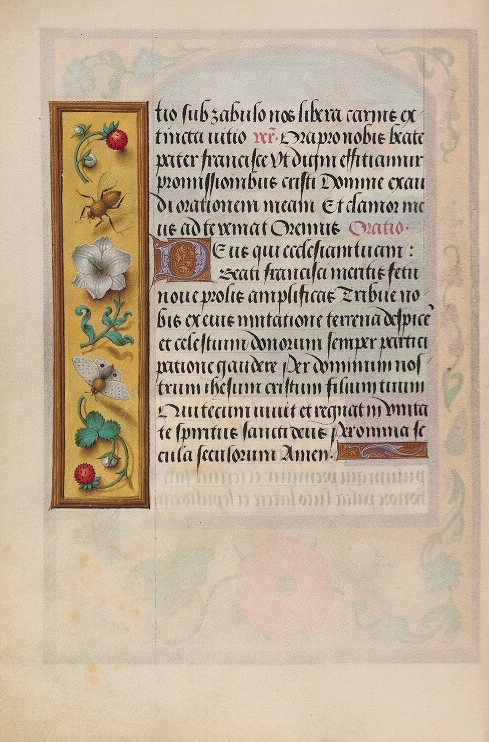 tio sub zabulo nos libera carnis ex
tincta uitio ver̄. Ora pro nobis beate
pater francisce Vt digni efficiamur
promissionibus cristi Domine exau
di orationem meam Et clamor me
us ad te veniat Oremus Oratio.
Deus qui ecclesiam tuam :
Beati francisci meritis fetu
noue prolis amplificas Tribue no
bis ex eius imitatione terrena despice
et celestium donorum semper partici
patione gaudere Per dominum nos
trum ihesum cristum filium tuum
Qui tecum uiuit et regnat in vnita
te spiritus sancti deus Per omnia se
cula seculorum Amen.